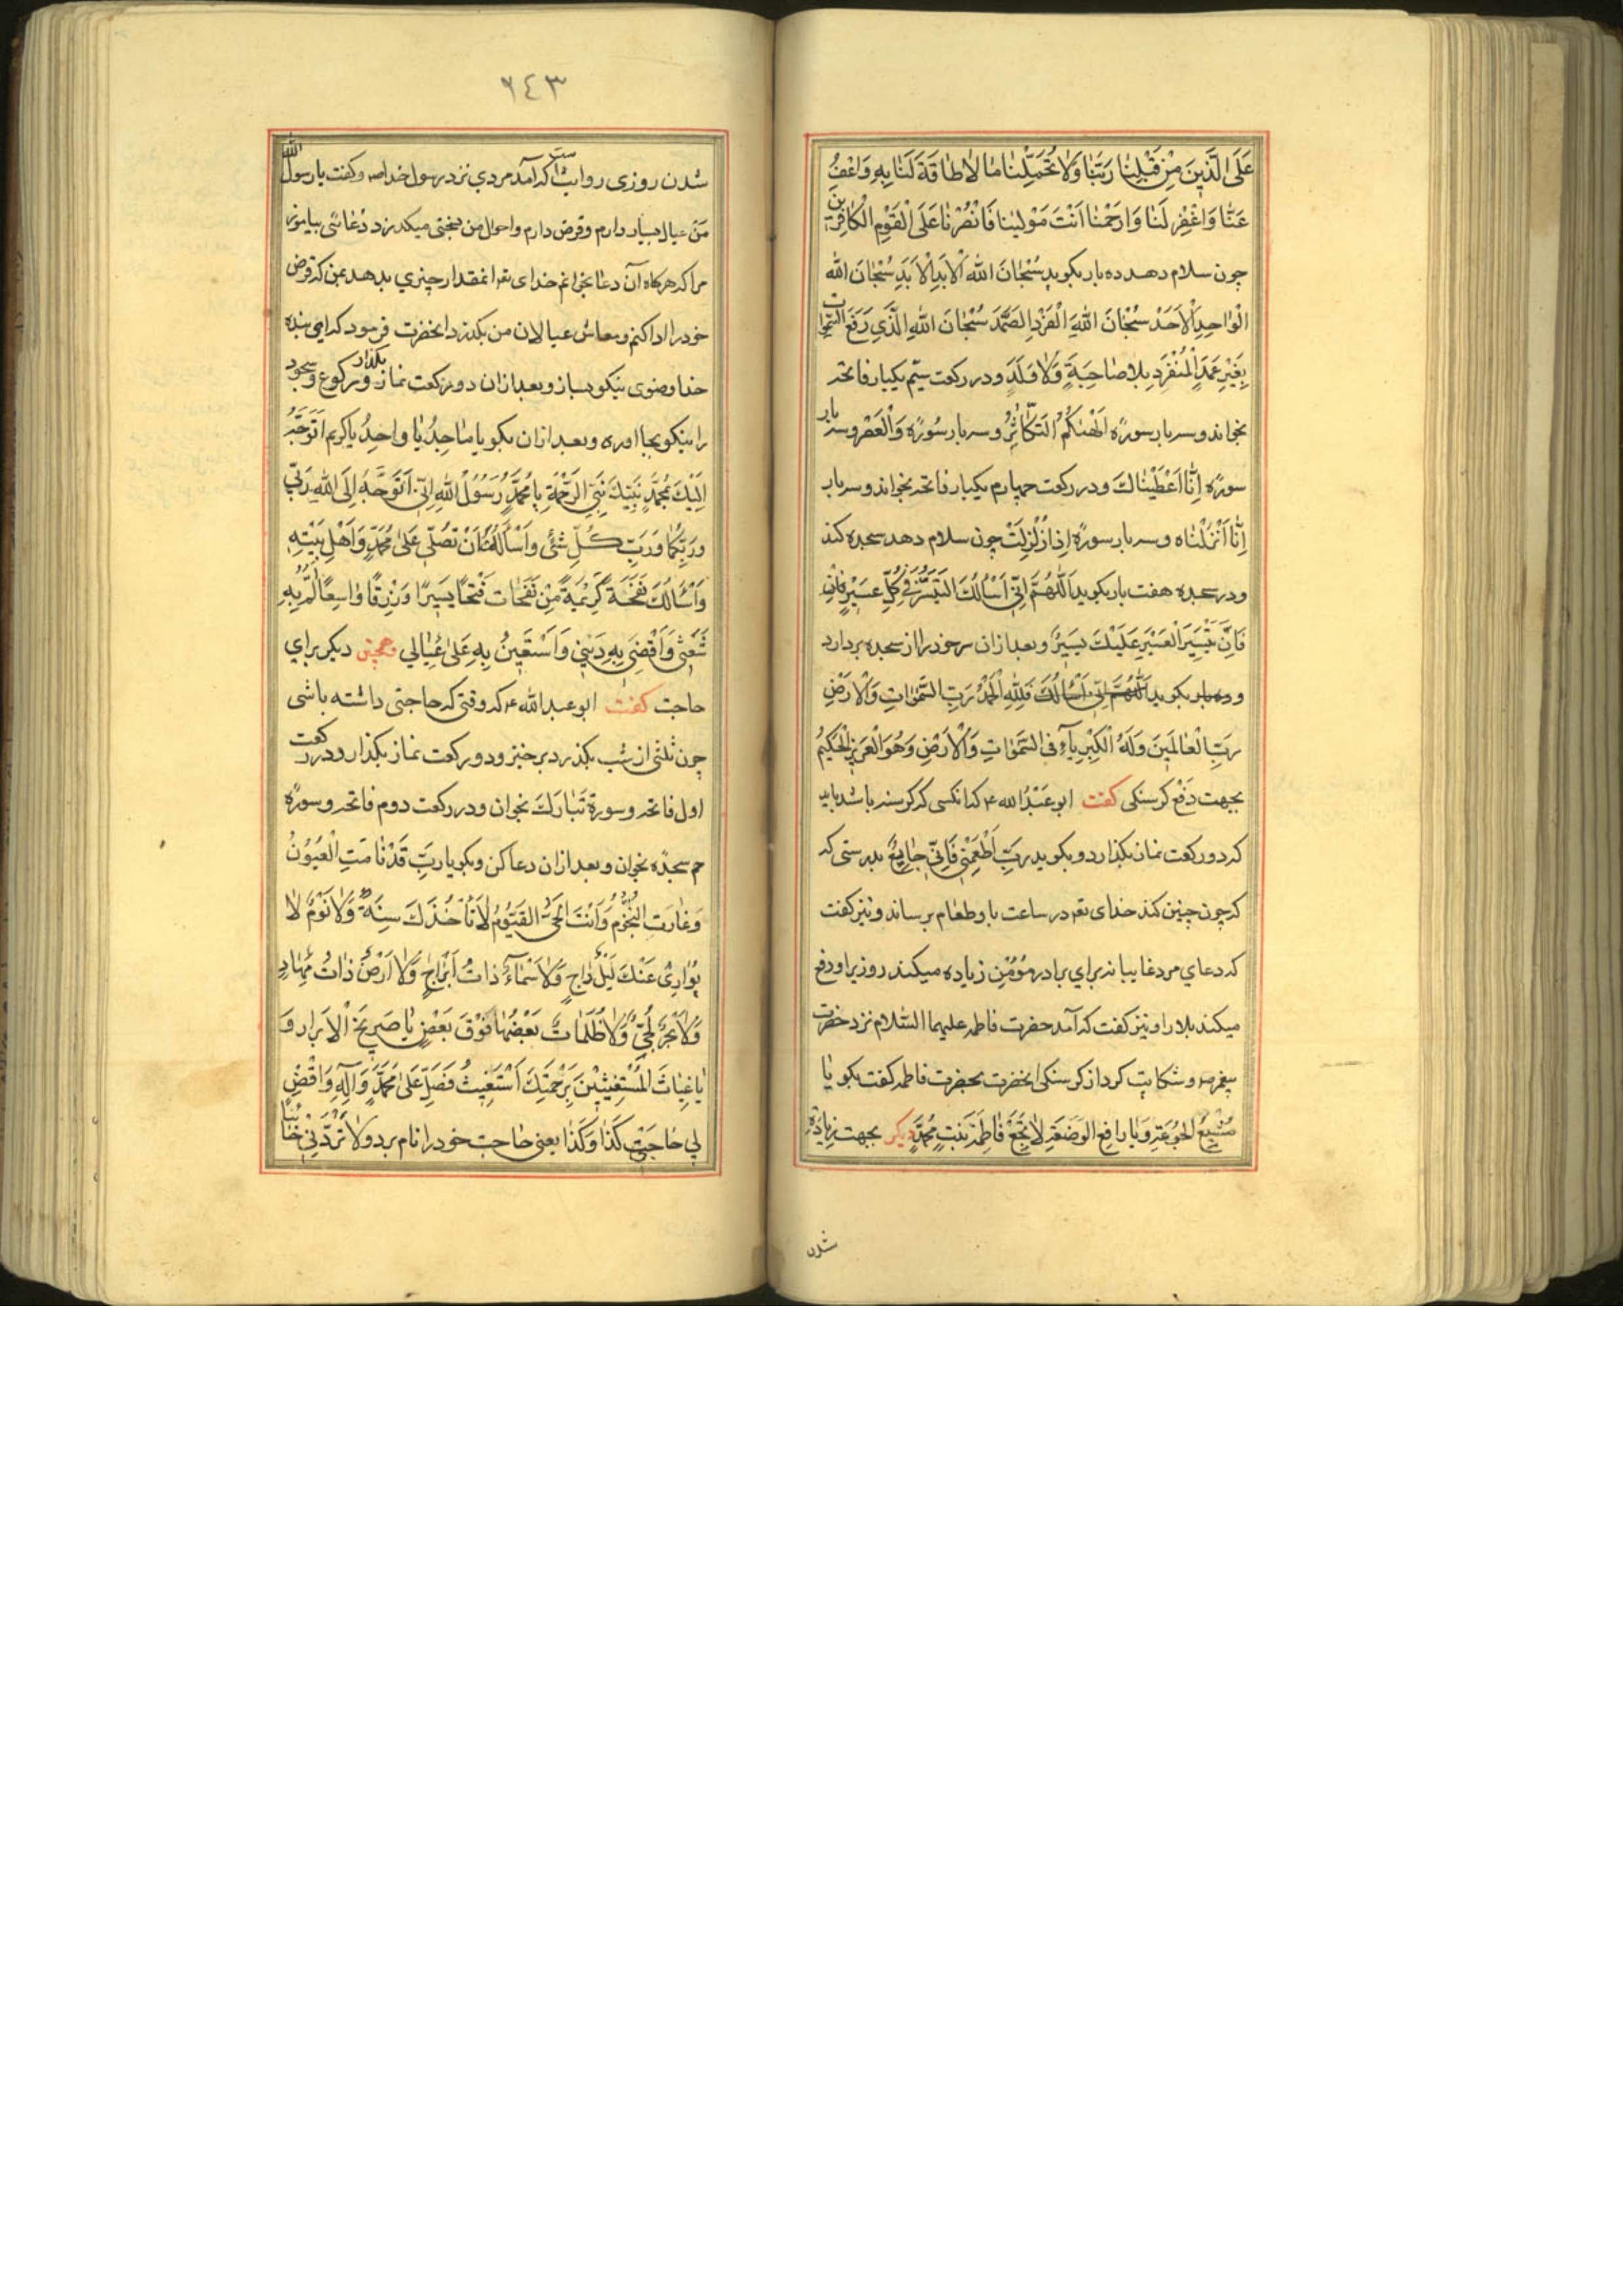 عَلَى الَّذِينَ مِنْ قَبْلِنَا رَبَّنَا وَلَا تُحَمِّلْنَا مَا لَا طَاقَةَ لَنَا بِهِ وَاعْفُ
عَنَّا وَاغْفِرْ لَنَا وَارْحَمْنَا أَنْتَ مَوْلَينَا فَانْصُرْنَا عَلَى الْقَوْمِ الْكَافِرِينَ
چون سلام دهد ده بار بکوید سُبْحَانَ اللهِ الْاَبَدِ الْاَبَدِ سُبْحَانَ الله
الْوَاحِدِ الْاَحَدْ سُبْحَانَ اللهِ الْفَرْدِ الصَّمَدْ سُبْحَانَ اللهِ الَّذِي رَفَعَ السَّمَوَات
بِغَيْرِ عَمَدٍ الْمُنْفَرِدِ بِلَا صَاحِبَةٍ وَلَا وَلَدٍ و در رکعت سیّم یکبار فاتحه
بخواند و سه بار سورۀ اَلْهَیکُمُ التَّکَاثُرُ و سه بار سُورَه وَالْعَصْر و سه بار
سورۀ اِنَّا اَعْطَیْنَاكَ و در رکعت چهارم یکبار فاتحه بخواند و سه بار
اِنَّا اَنْزَلْنَاه و سه بار سورۀ اِذَا زُلْزِلَتْ چون سلام دهد سجده کند
و در سجده هفت بار بکوید اَللّٰهُمَّ اِنّی اَسْاَلُكَ التَّیَسُّرَ فی کُلِّ عَسیرٍ فَاِنَّ
فَاِنَّ تَیْسِیرَ الْعَسیرِ عَلَیْكَ یَسیرٌ و بعد ازان سر خود را از سجده بردارد
و ده بار بکوید اَللّٰهُمَّ اِنّی اَسْاَلُكَ فَلِلّٰهِ الْحَمْدُ رَبِّ السَّمَوَاتِ وَالْاَرْضِ
رَبِّ الْعَالَمینَ وَلَهُ الْکِبْرِیَآءُ فِی السَّمَوَاتِ وَالْاَرْضِ وَهُوَ الْعَزیزُ الْحَکیمُ
بجهت دَفْع کرسنکی کفت ابو عَبْدُ الله ع که انکسی که کرسنه باشد باید
که دو رکعت نماز بکذارد و بکوید رَبِّ اَطْعِمْنی فَاِنّی جَایِعٌ بدرستی که
که چون چنین کند خدای تعه در ساعت باو طعام برساند و نیز کفت
که دعای مرد غایبانه برای برادر مؤمن زیاده میکند روزی او و رفع
میکند بلا را و نیز کفت که آمد حضرت فاطمه علیهما السّلام نزد حضرت
پیغمبر ص و شکایت کرد از کرسنکی انحضرت بحضرت فاطمه کفت بکو یا
مُشْبِعَ الْجَوْعَةِ وَیَا رَافِعَ الْوَضَعَةِ لَا تُجِعْ فَاطِمَةَ بِنْتِ مُحَمَّدٍ دیکر بجهت زیاده
شدن
٦٤٣
شدن روزی روایتست که آمد مردی نزد رسول خدا ص و کفت یا رسول الله
من عیال بسیار دارم و قرض دارم و احوال من بسختی میکذرد دُعائی بیاموز
مرا که هرکاه آن دعا بخوانم خدای تعه انمقدار چیزی بدهد بمن که قرض
خود را ادا کنم و معاش عیالان من بکذرد انحضرت فرمود که ای بنده
خدا وضوی نیکو بساز و بعد ازان دو رکعت نماز بکذار و رکوع و سجود
را نیکو بجا اوره و بعد ازان بکو یا مَاجِدُ یَا وَاحِدُ یَا کَریم اَتَوَجَّهُ
اِلَیْكَ بِمُحَمَّدٍ نَبِیِّكَ نَبِیِّ الرَّحْمَةِ یَا مُحَمَّدُ رَسُوُلَ اللهِ اِنّی اَتَوَجَّهُ اِلَی اللهِ رَبّی
وَرَبِّكَ وَرَبِّ کُلِّ شَیْءٍ وَاَسْاَلُهُ اَنْ تُصَلِّیَ عَلٰی مُحَمَّدٍ وَاَهْلِ بَیْتِهِ
وَاَسْاَلُكَ نَفْحَةً کَریمَةً مِنْ نَفَحَات فَتْحًا یَسیرًا وَرِزْقًا وَاسِعًا اَلُمُّ بِهِ
شَعْثی وَاَقْضِی بِهِ دَیْنی وَاَسْتَعینُ بِهِ عَلٰی عَیَالی همچنین دیکر برای
حاجت کفت ابو عبد الله ع که وقتی که حاجتی داشته باشی
چون ثلثی از شب بکذرد برخیز و دو رکعت نماز بکذار و در رکعت
اول فاتحه و سورة تَبَارَكَ بخوان و در رکعت دوم فاتحه و سورۀ
حم سجدۀ بخوان و بعد ازان دعا کن و بکو یا رَبِّ قَدْ نَامَتِ الْعُیُوُنُ
وَغَارَتِ النُّجُوُم وَاَنْتَ الْحَیُّ الْقَیُّوُمُ لَا تَاْخُذُكَ سِنَةٌ وَلَا نَوْمٌ لَا
یُوَاری عَنْكَ لَیْلٌ دَاجٍ وَلَا سَمَآءٌ ذَاتُ اَبْرَاجٍ وَلَا اَرْضٌ ذَاتُ مِهَادٍ
وَلَا بَحْرٌ لُجِّیٌّ وَلَا ظُلُمَاتٌ بَعْضُهَا فَوْقَ بَعْضٍ یَا صَریخَ الْاَبْرَار وَ
یَا غِیَاثَ الْمُسْتَغیثینَ بِرَحْمَتِكَ اَسْتَغیثُ فَصَلِّ عَلٰی مُحَمَّدٍ وَآلِهِ وَاقْضِ
لی حَاجَتی کَذَا وَکَذَا یعنی حاجت خود را نام برد وَلَا تَرُدَّنی خَائِبًا